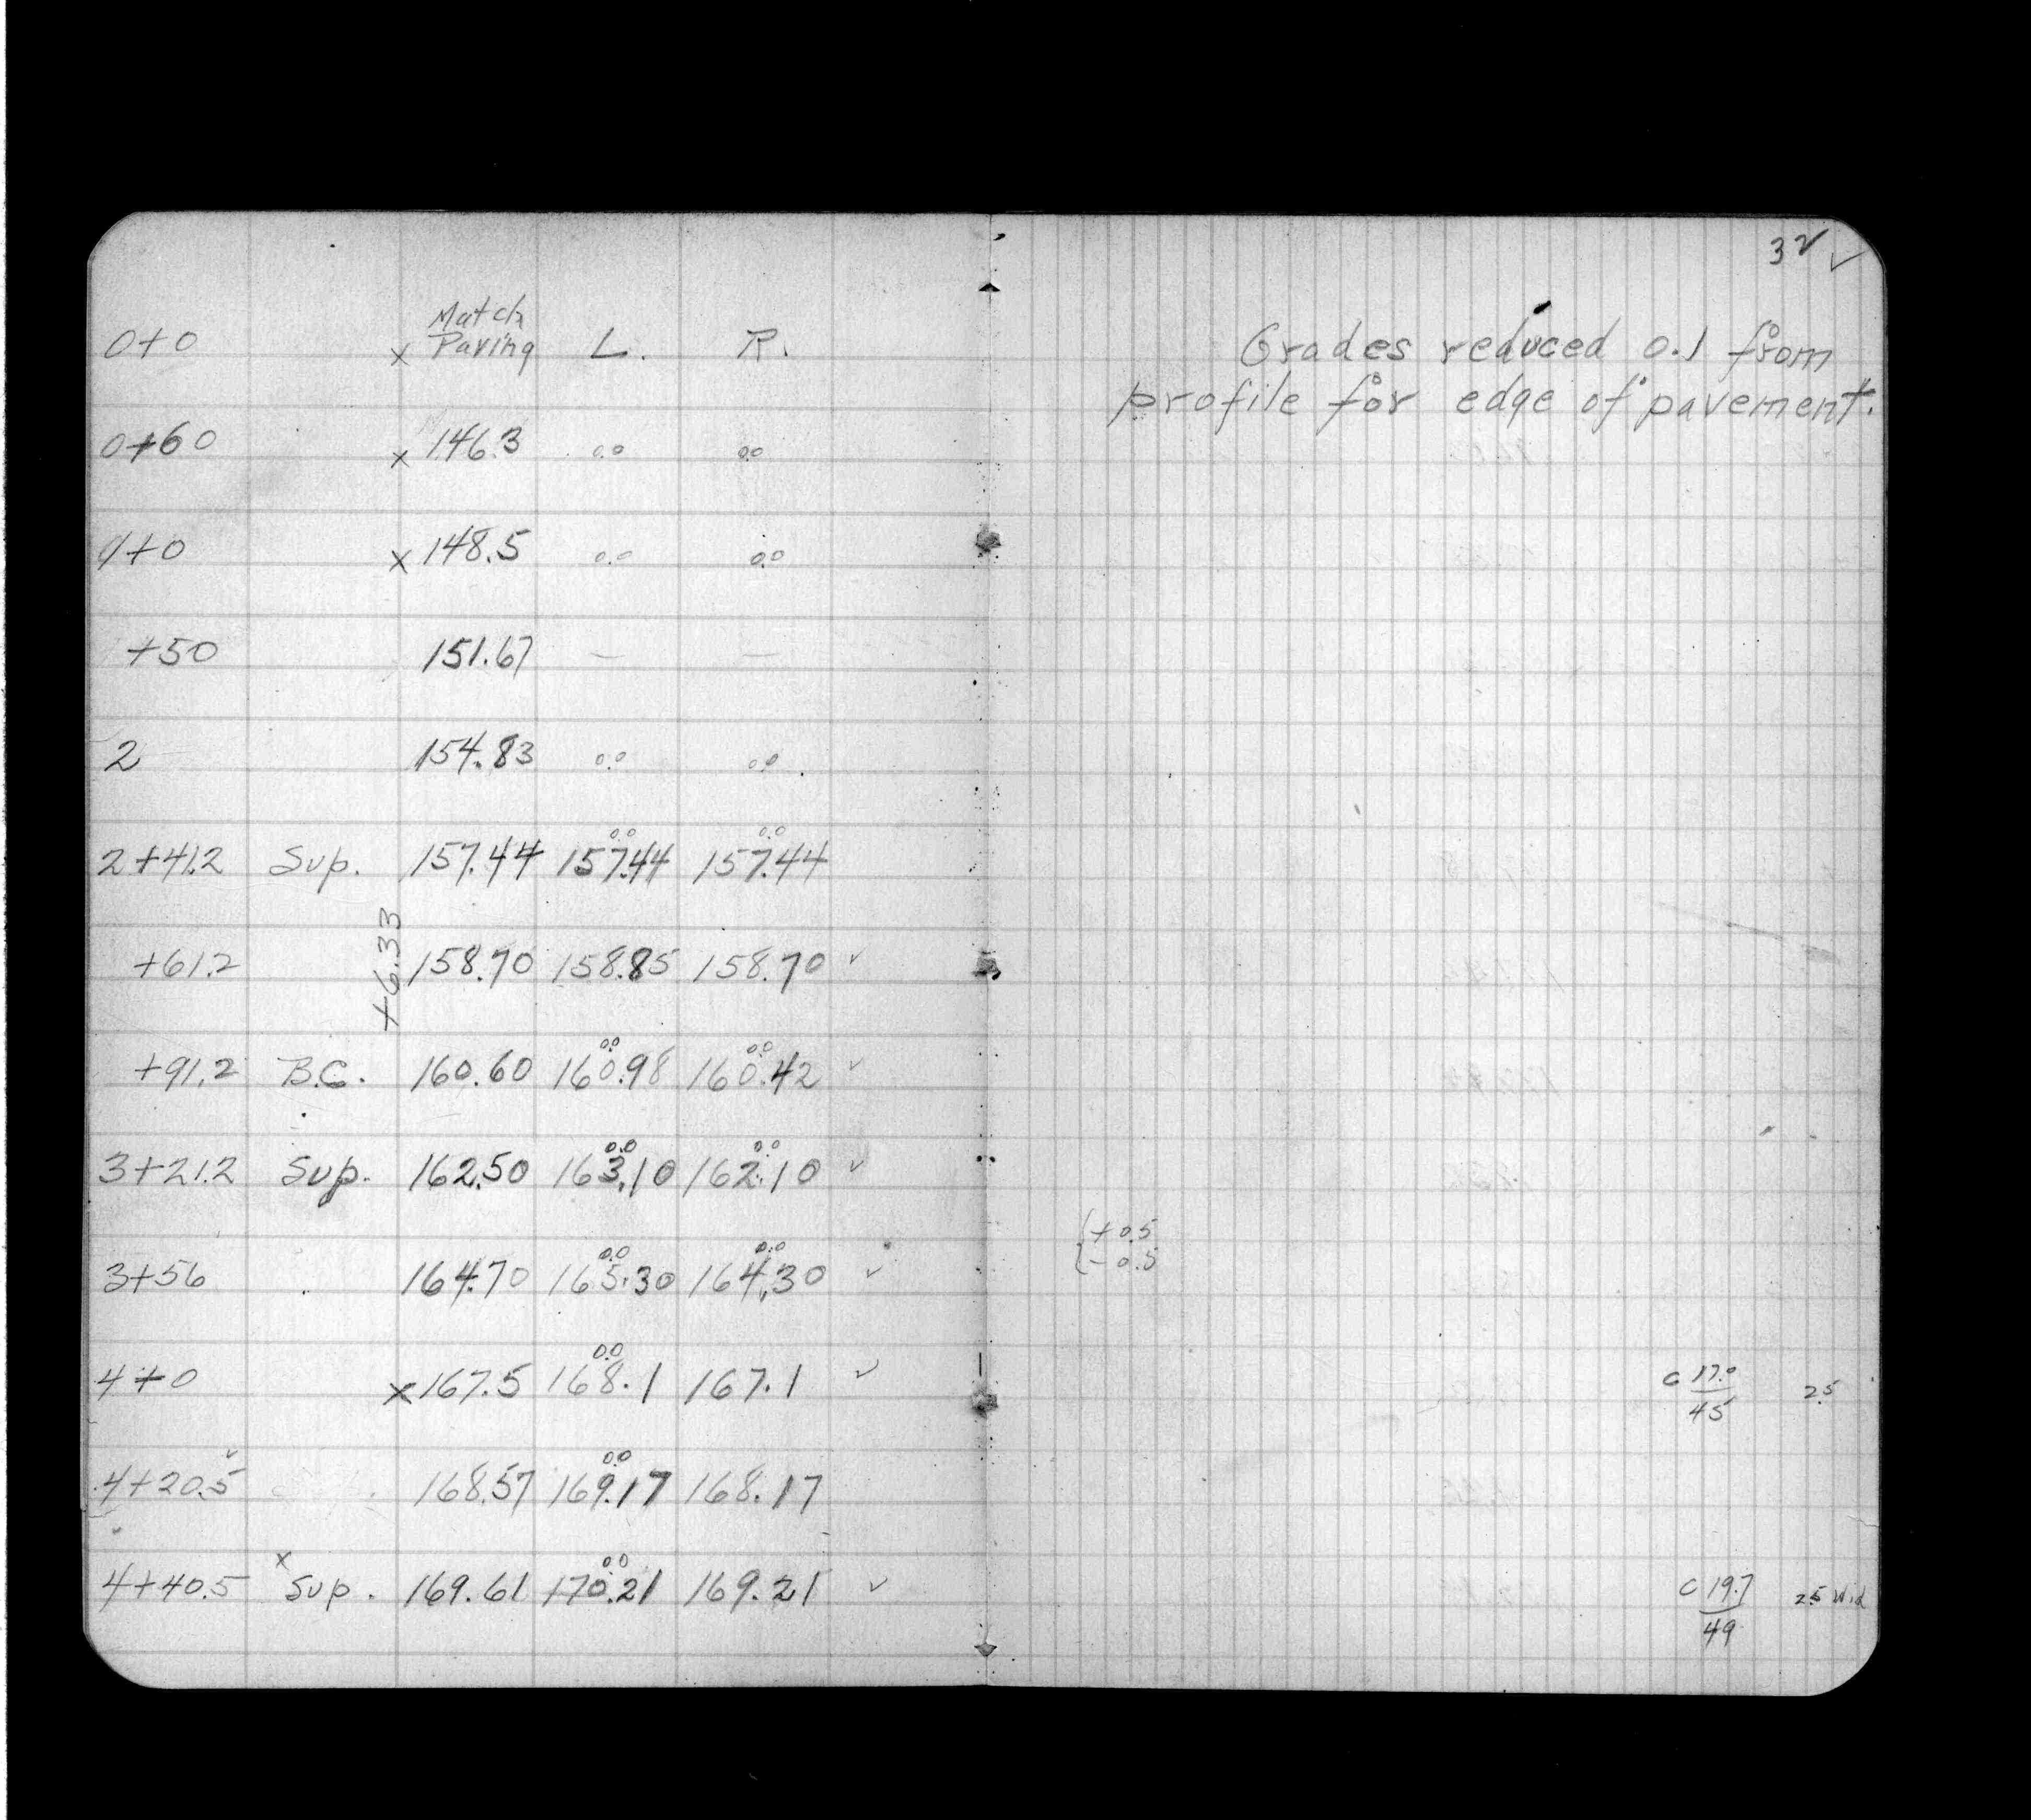 32 ✓
0+0 x Match Paving L. R.
Grades reduced 0.1 from
profile for edge of pavement.
0+60 x 146.3 0.0 0.0
1+0 x 148.5 0.0 0.0
+50 151.67 — —
2 154.83 0.0 0.0
0.0 0.0
2+41.2 Sup. 157.44 157.44 157.44
+6.33
+61.2 158.70 158.85 158.70 ✓
0.0 0.0
+91.2 B.C. 160.60 160.98 160.42 ✓
0.0 0.0
3+21.2 Sup. 162.50 163.10 162.10 ✓
0.0 0.0
3+56 164.70 165.30 164.30 ✓
{+0.5
{-0.5
0.0
4+0 x 167.5 168.1 167.1 ✓ C 17.0/45 25
0.0
4+20.5 168.57 169.17 168.17
0.0
4+40.5 x Sup. 169.61 170.21 169.21 ✓ C 19.7/49 25 Wid